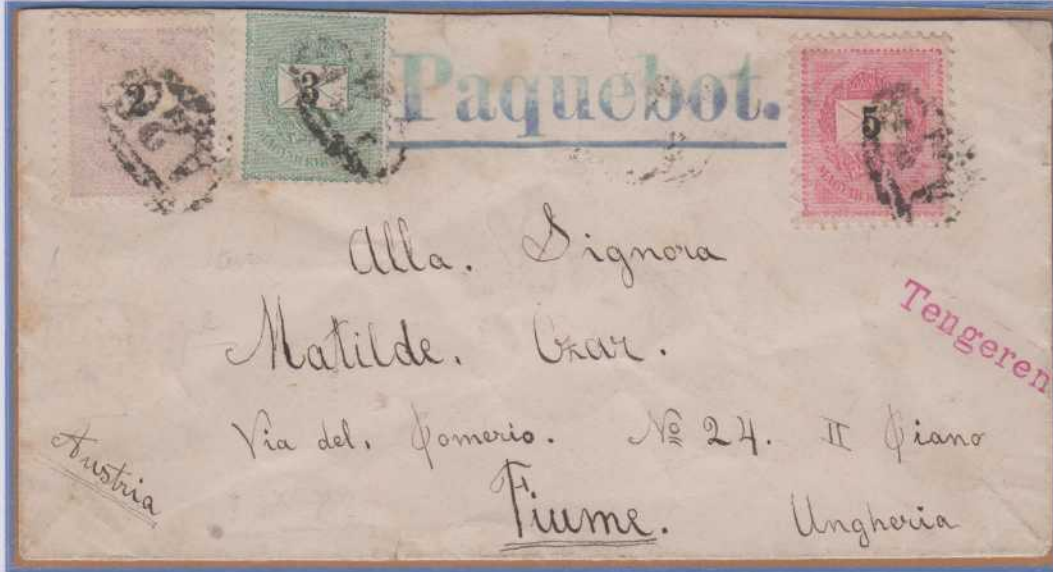 2
3
Paquebot.
5
MAGYAR KIR
Alla. Signora
Matilde. Czar.
Tengeren
Via del. Pomerio. No 24. II Piano
Austria
Fiume. Ungheria